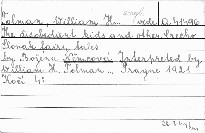 Tolman, William H... vede A 41496
The disobedient kids and other Czecho
Slovak fairy tales
by Božena Němcová Interpreted by
William H. Tolman... Prague 1921
Kočí 4: